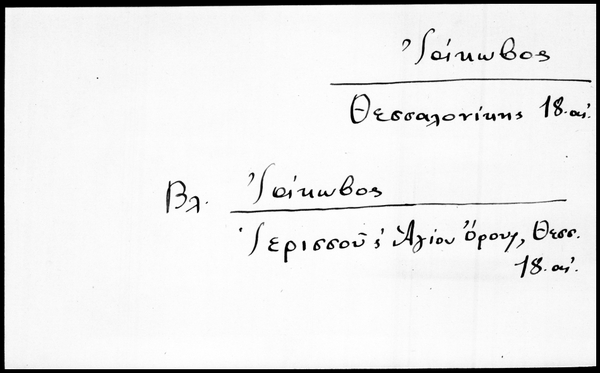 Ἰάκωβος
Θεσσαλονίκης 18. αἰ.
Βλ. Ἰάκωβος
Ἱερισσοῦ & Ἁγίου Ὄρους, Θεσσ.
18. αἰ.